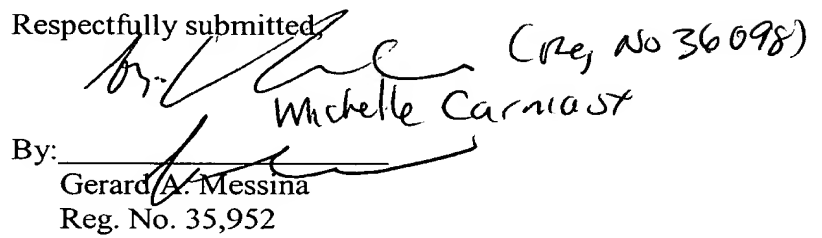 Respectfully submitted,
by: (Reg No 36098)
Michelle Carniast
By:
Gerard A. Messina
Reg. No. 35,952